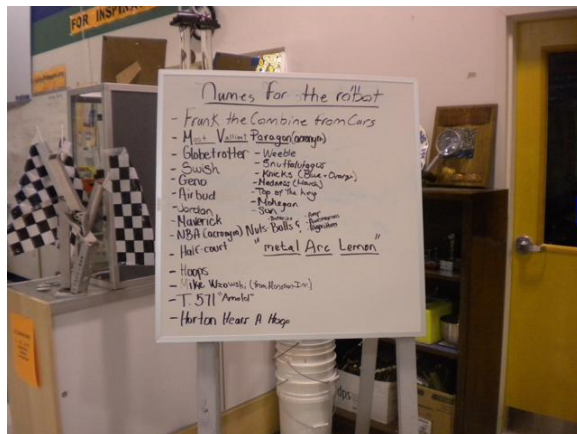 FOR INSPIRA
Names for the robot
- Frank the Combine from Cars
- Most Valliant Paragon (acronym)
- Globetrotter
- Swish
- Geno
- Airbud
- Jordan
- Maverick
- NBA (acronym) Nuts Balls &
- Half-court
- Hoops
- Mike Wzowski (from Monsters Inc)
- T. 571 "Arnold"
- Horton Hears A Hoop
- Weeble
- Snuffalufagus
- Knicks (Blue + Orange)
- Madness (March)
- Top of the key
- Mohegan
Sun
"metal Arc Lemon"